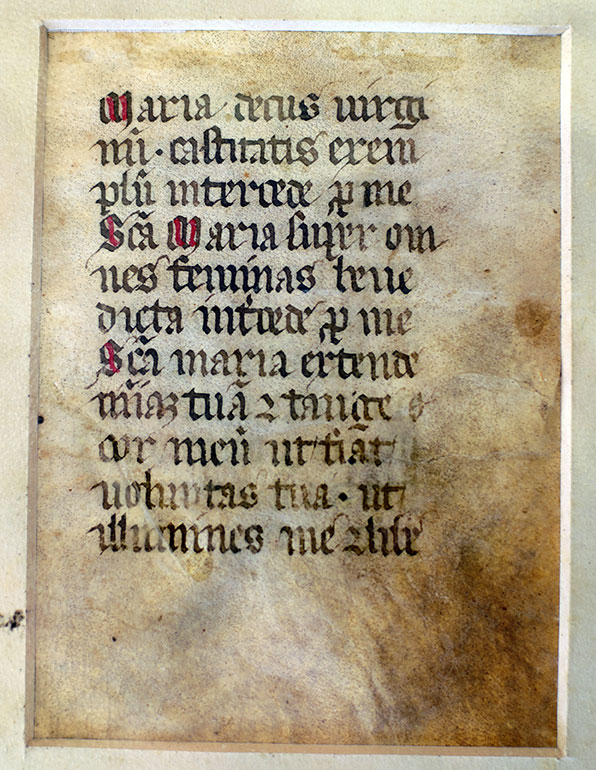 Maria decus virgi
nū · castitatis exem
plū intercede ꝓ me
Scā Maria super om
nes feminas bene
dicta int̄cede ꝓ me
Scā maria extende
mīaꝫ tuā ⁊ tange
cor meū ut fiāt
uoluntas tua · ut
illumines me ⁊ libe